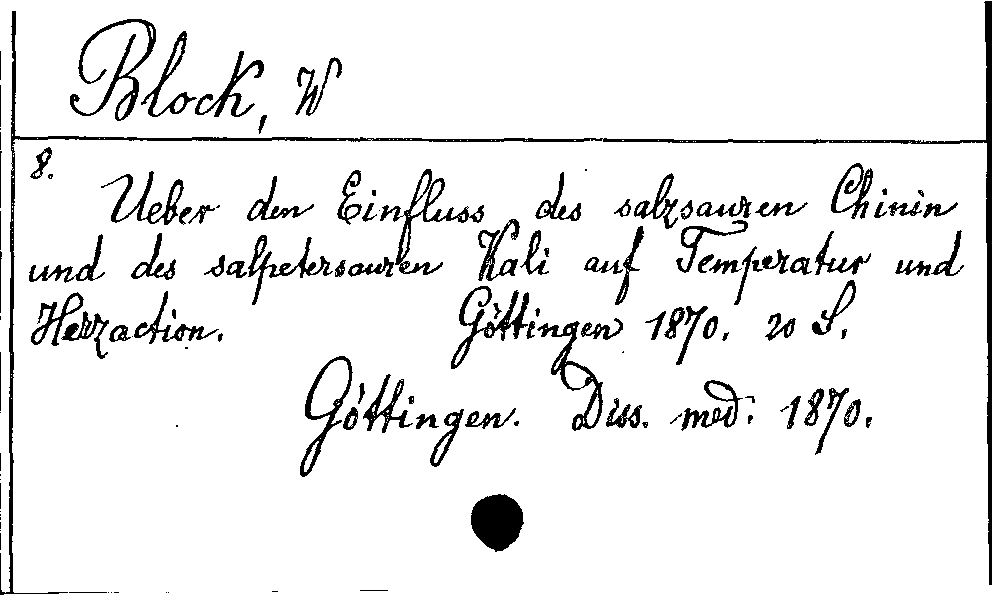 Block, W
8.
Ueber den Einfluss des salzsauren Chinin
und des salpetersauren Kali auf Temperatur und
Herzaction. Göttingen 1870. 20 S.
Göttingen. Diss. med. 1870.